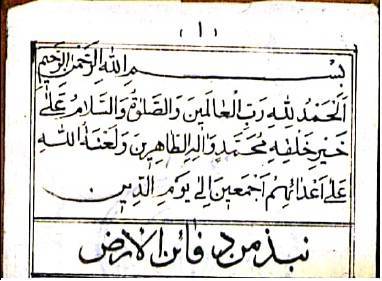 (١)
بِسْمِ اللهِ الرَّحْمٰنِ الرَّحِيمِ
اَلْحَمْدُ لِلّٰهِ رَبِّ الْعَالَمِينَ وَالصَّلٰوةُ وَالسَّلَامُ عَلٰى
خَيْرِ خَلْقِهِ مُحَمَّدٍ وَالِهِ الطَّاهِرِينَ وَلَعْنَةُ اللهِ
عَلٰى اَعْدَائِهِمْ اَجْمَعِينَ اِلٰى يَوْمِ الدِّينِ
نبذ من دفائن الارض